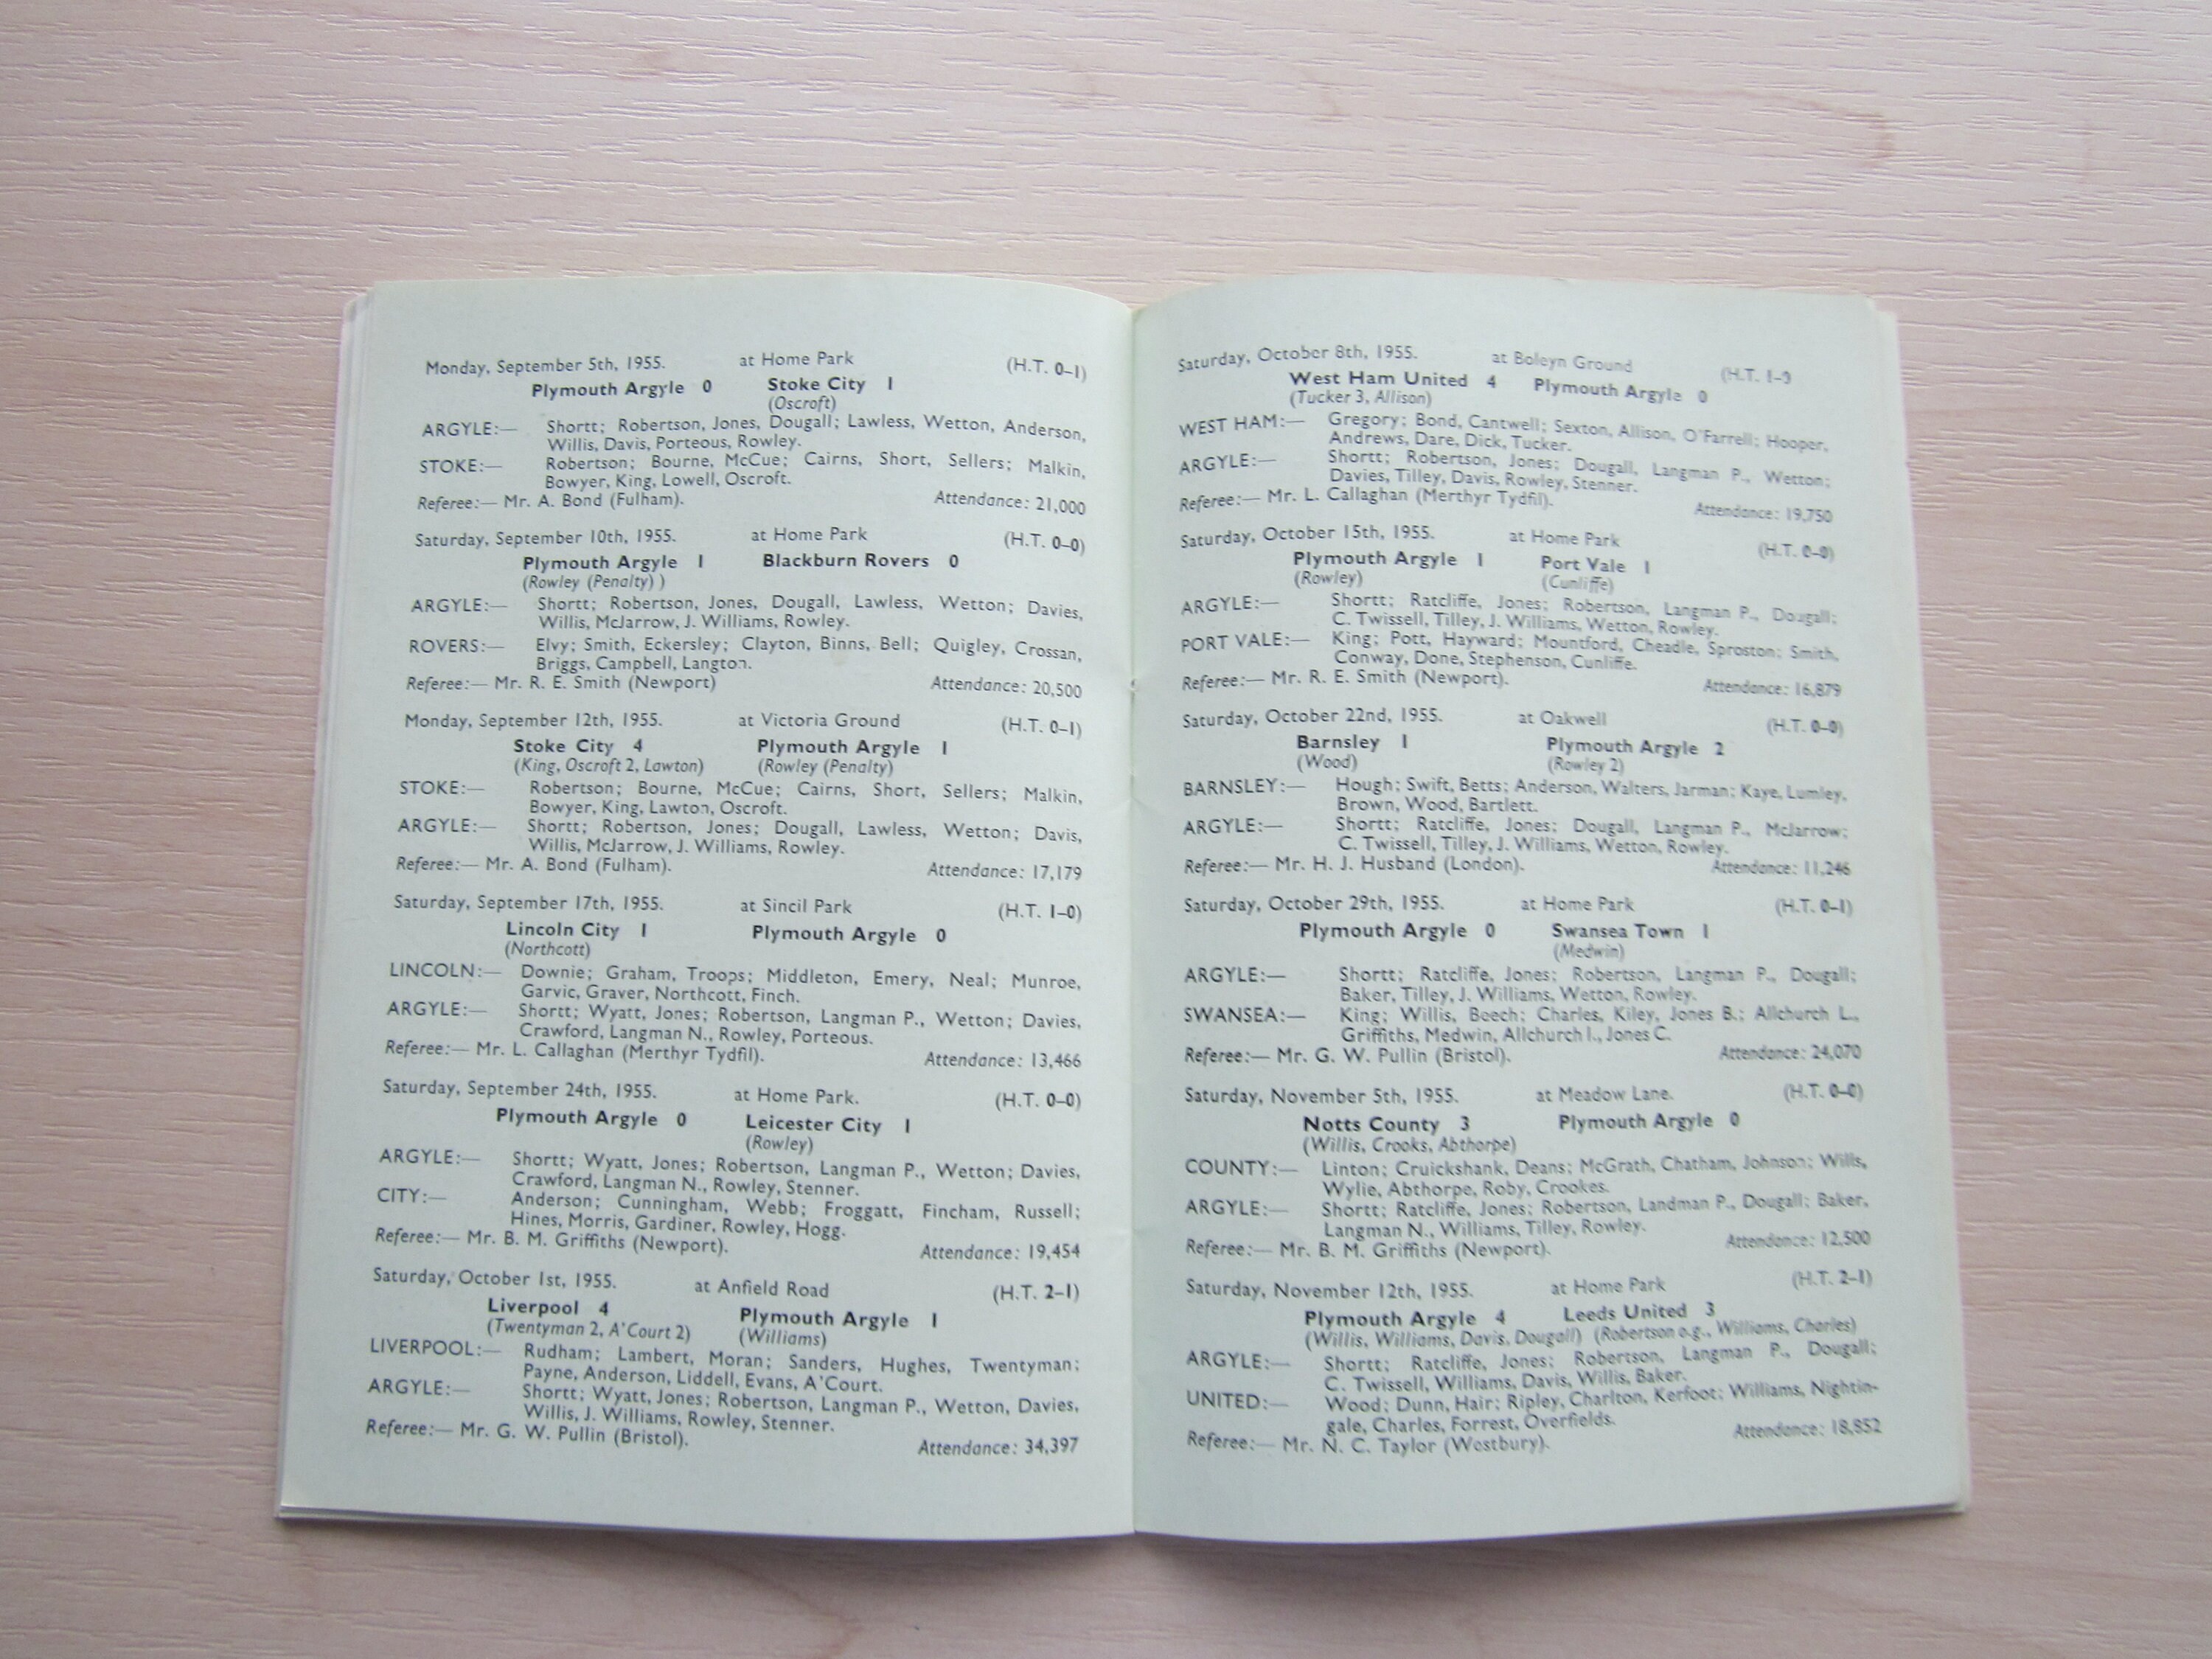 Monday, September 5th, 1955. at Home Park (H.T. 0–1)
Plymouth Argyle 0 Stoke City 1
(Oscroft)
ARGYLE:— Shortt; Robertson, Jones, Dougall; Lawless, Wetton, Anderson,
Willis, Davis, Porteous, Rowley.
STOKE:— Robertson; Bourne, McCue; Cairns, Short, Sellers; Malkin,
Bowyer, King, Lowell, Oscroft.
Referee:— Mr. A. Bond (Fulham). Attendance: 21,000
Saturday, September 10th, 1955. at Home Park (H.T. 0–0)
Plymouth Argyle 1 Blackburn Rovers 0
(Rowley (Penalty) )
ARGYLE:— Shortt; Robertson, Jones, Dougall, Lawless, Wetton; Davies,
Willis, McJarrow, J. Williams, Rowley.
ROVERS:— Elvy; Smith, Eckersley; Clayton, Binns, Bell; Quigley, Crossan,
Briggs, Campbell, Langton.
Referee:— Mr. R. E. Smith (Newport) Attendance: 20,500
Monday, September 12th, 1955. at Victoria Ground (H.T. 0–1)
Stoke City 4 Plymouth Argyle 1
(King, Oscroft 2, Lawton) (Rowley (Penalty)
STOKE:— Robertson; Bourne, McCue; Cairns, Short, Sellers; Malkin,
Bowyer, King, Lawton, Oscroft.
ARGYLE:— Shortt; Robertson, Jones; Dougall, Lawless, Wetton; Davis,
Willis, McJarrow, J. Williams, Rowley.
Referee:— Mr. A. Bond (Fulham). Attendance: 17,179
Saturday, September 17th, 1955. at Sincil Park (H.T. 1–0)
Lincoln City 1 Plymouth Argyle 0
(Northcott)
LINCOLN:— Downie; Graham, Troops; Middleton, Emery, Neal; Munroe,
Garvic, Graver, Northcott, Finch.
ARGYLE:— Shortt; Wyatt, Jones; Robertson, Langman P., Wetton; Davies,
Crawford, Langman N., Rowley, Porteous.
Referee:— Mr. L. Callaghan (Merthyr Tydfil). Attendance: 13,466
Saturday, September 24th, 1955. at Home Park. (H.T. 0–0)
Plymouth Argyle 0 Leicester City 1
(Rowley)
ARGYLE:— Shortt; Wyatt, Jones; Robertson, Langman P., Wetton; Davies,
Crawford, Langman N., Rowley, Stenner.
CITY:— Anderson; Cunningham, Webb; Froggatt, Fincham, Russell;
Hines, Morris, Gardiner, Rowley, Hogg.
Referee:— Mr. B. M. Griffiths (Newport). Attendance: 19,454
Saturday, October 1st, 1955. at Anfield Road (H.T. 2–1)
Liverpool 4 Plymouth Argyle 1
(Twentyman 2, A'Court 2) (Williams)
LIVERPOOL:— Rudham; Lambert, Moran; Sanders, Hughes, Twentyman;
Payne, Anderson, Liddell, Evans, A'Court.
ARGYLE:— Shortt; Wyatt, Jones; Robertson, Langman P., Wetton, Davies,
Willis, J. Williams, Rowley, Stenner.
Referee:— Mr. G. W. Pullin (Bristol). Attendance: 34,397
Saturday, October 8th, 1955. at Boleyn Ground (H.T. 1–0
West Ham United 4 Plymouth Argyle 0
(Tucker 3, Allison)
WEST HAM:— Gregory; Bond, Cantwell; Sexton, Allison, O'Farrell; Hooper,
Andrews, Dare, Dick, Tucker.
ARGYLE:— Shortt; Robertson, Jones; Dougall, Langman P., Wetton;
Davies, Tilley, Davis, Rowley, Stenner.
Referee:— Mr. L. Callaghan (Merthyr Tydfil). Attendance: 19,750
Saturday, October 15th, 1955. at Home Park (H.T. 0–0)
Plymouth Argyle 1 Port Vale 1
(Rowley) (Cunliffe)
ARGYLE:— Shortt; Ratcliffe, Jones; Robertson, Langman P., Dougall;
C. Twissell, Tilley, J. Williams, Wetton, Rowley.
PORT VALE:— King; Pott, Hayward; Mountford, Cheadle, Sproston; Smith,
Conway, Done, Stephenson, Cunliffe.
Referee:— Mr. R. E. Smith (Newport). Attendance: 16,879
Saturday, October 22nd, 1955. at Oakwell (H.T. 0–0)
Barnsley 1 Plymouth Argyle 2
(Wood) (Rowley 2)
BARNSLEY:— Hough; Swift, Betts; Anderson, Walters, Jarman; Kaye, Lumley,
Brown, Wood, Bartlett.
ARGYLE:— Shortt; Ratcliffe, Jones; Dougall, Langman P., McJarrow;
C. Twissell, Tilley, J. Williams, Wetton, Rowley.
Referee:— Mr. H. J. Husband (London). Attendance: 11,246
Saturday, October 29th, 1955. at Home Park (H.T. 0–1)
Plymouth Argyle 0 Swansea Town 1
(Medwin)
ARGYLE:— Shortt; Ratcliffe, Jones; Robertson, Langman P., Dougall;
Baker, Tilley, J. Williams, Wetton, Rowley.
SWANSEA:— King; Willis, Beech; Charles, Kiley, Jones B.; Allchurch L.,
Griffiths, Medwin, Allchurch I., Jones C.
Referee:— Mr. G. W. Pullin (Bristol). Attendance: 24,070
Saturday, November 5th, 1955. at Meadow Lane. (H.T. 0–0)
Notts County 3 Plymouth Argyle 0
(Willis, Crooks, Abthorpe)
COUNTY:— Linton; Cruickshank, Deans; McGrath, Chatham, Johnson; Wills,
Wylie, Abthorpe, Roby, Crookes.
ARGYLE:— Shortt; Ratcliffe, Jones; Robertson, Landman P., Dougall; Baker,
Langman N., Williams, Tilley, Rowley.
Referee:— Mr. B. M. Griffiths (Newport). Attendance: 12,500
Saturday, November 12th, 1955. at Home Park (H.T. 2–1)
Plymouth Argyle 4 Leeds United 3
(Willis, Williams, Davis, Dougall) (Robertson o.g., Williams, Charles)
ARGYLE:— Shortt; Ratcliffe, Jones; Robertson, Langman P., Dougall;
C. Twissell, Williams, Davis, Willis, Baker.
UNITED:— Wood; Dunn, Hair; Ripley, Charlton, Kerfoot; Williams, Nightin-
gale, Charles, Forrest, Overfields.
Referee:— Mr. N. C. Taylor (Westbury). Attendance: 18,852